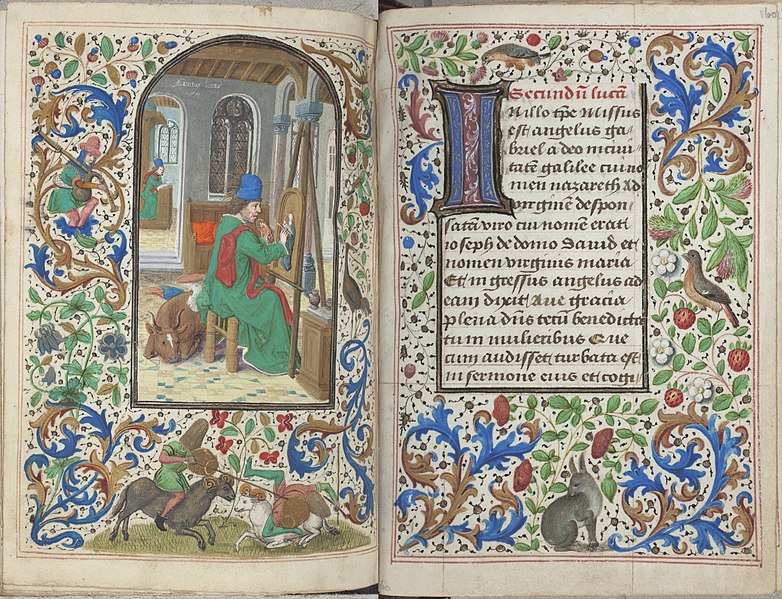 Sanctus lucas
160
Secundū lucā
In illo tp̄e Missus
est angelus ga
briel a deo in ciui
tatē galilee cui no
men nazareth Ad
virginē despon
satā viro cui nomē erat
ioseph de domo Dauid et
nomen virginis maria
Et ingressus angelus ad
eam dixit Aue gracia
plena dn̄s tecū benedicta
tu in mulieribus Que
cum audisset turbata est
in sermone eius et cogi